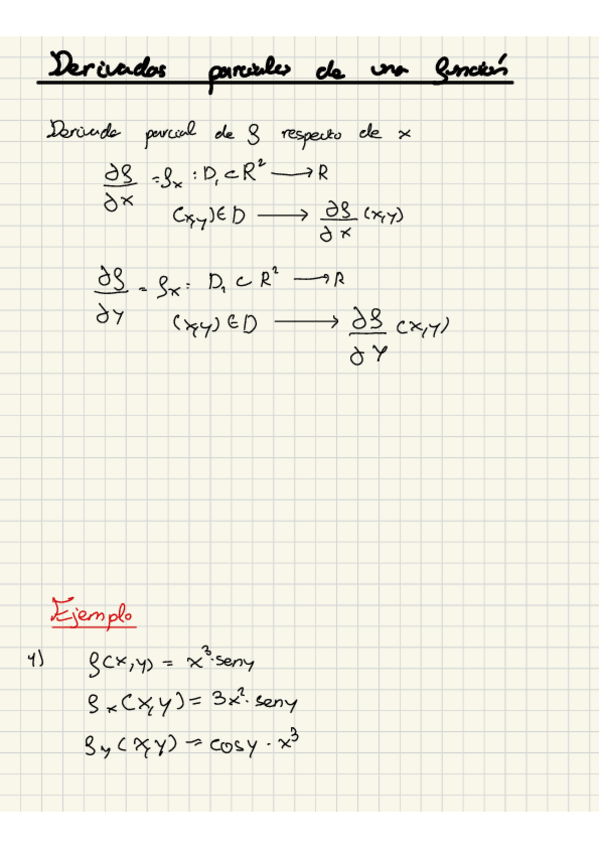 Derivadas parciales de una función
Derivada parcial de f respecto de x
∂f/∂x = fx : D₁ ⊂ R² → R
(x,y) ∈ D → ∂f/∂x (x,y)
∂f/∂y = fx : D₁ ⊂ R² → R
(x,y) ∈ D → ∂f/∂y (x,y)
Ejemplo
4) f(x,y) = x³·seny
fx(x,y) = 3x²·seny
fy(x,y) = cosy·x³